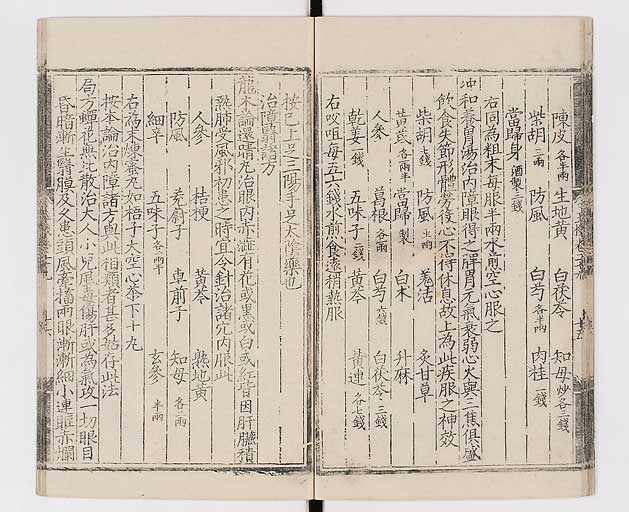 陳皮 各半兩 生地黃 白茯苓 知母 炒各二錢
柴胡 二兩 防風 白芍 各半兩 肉桂 一錢
當歸身 酒製二錢
右同為粗末每服半兩水煎空心服之
冲和養胃湯治內障眼得之脾胃元氣衰弱心火與三焦俱盛
飲食失節形體勞役心不得休息故上為此疾服之神效
柴胡 七錢 防風 半兩 羗活 炙甘草
黃芪 各兩半 當歸 製 白朮 升麻
人參 葛根 各兩 白芍 六錢 白茯苓 三錢
乾姜 一錢 黃芩 五味子 黃連 各七錢
右㕮咀每五六錢水煎食遠稍熱服
按已上足三陽手足太陰藥也
治障翳諸方
龍木論還睛丸治眼內赤澁有花或黑或白或紅皆因肝臟積
熱肺受風邪初患之時宜令針治諸穴內服此
人參 桔梗 黃芩 熟地黃
防風 茺蔚子 車前子 知母 各二兩
細辛 五味子 各兩半 玄參 半兩
右為末煉蜜丸如梧子大空心茶下十丸
按本論治內障諸方與此相類者甚多姑存此法
局方蟬花無比散治大人小兒風毒傷肝或為氣攻一切眼目
昏暗漸生翳膜及久患頭風牽搐兩眼漸漸細小連眶赤爛